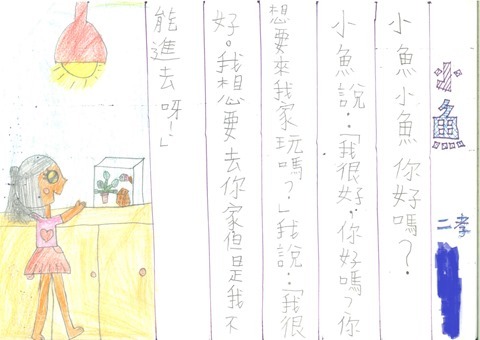 小魚
二孝
小魚小魚你好嗎？
小魚說：「我很好，你好嗎？你
想要來我家玩嗎？」我說：「我很
好。我想要去你家但是我不
能進去呀！」